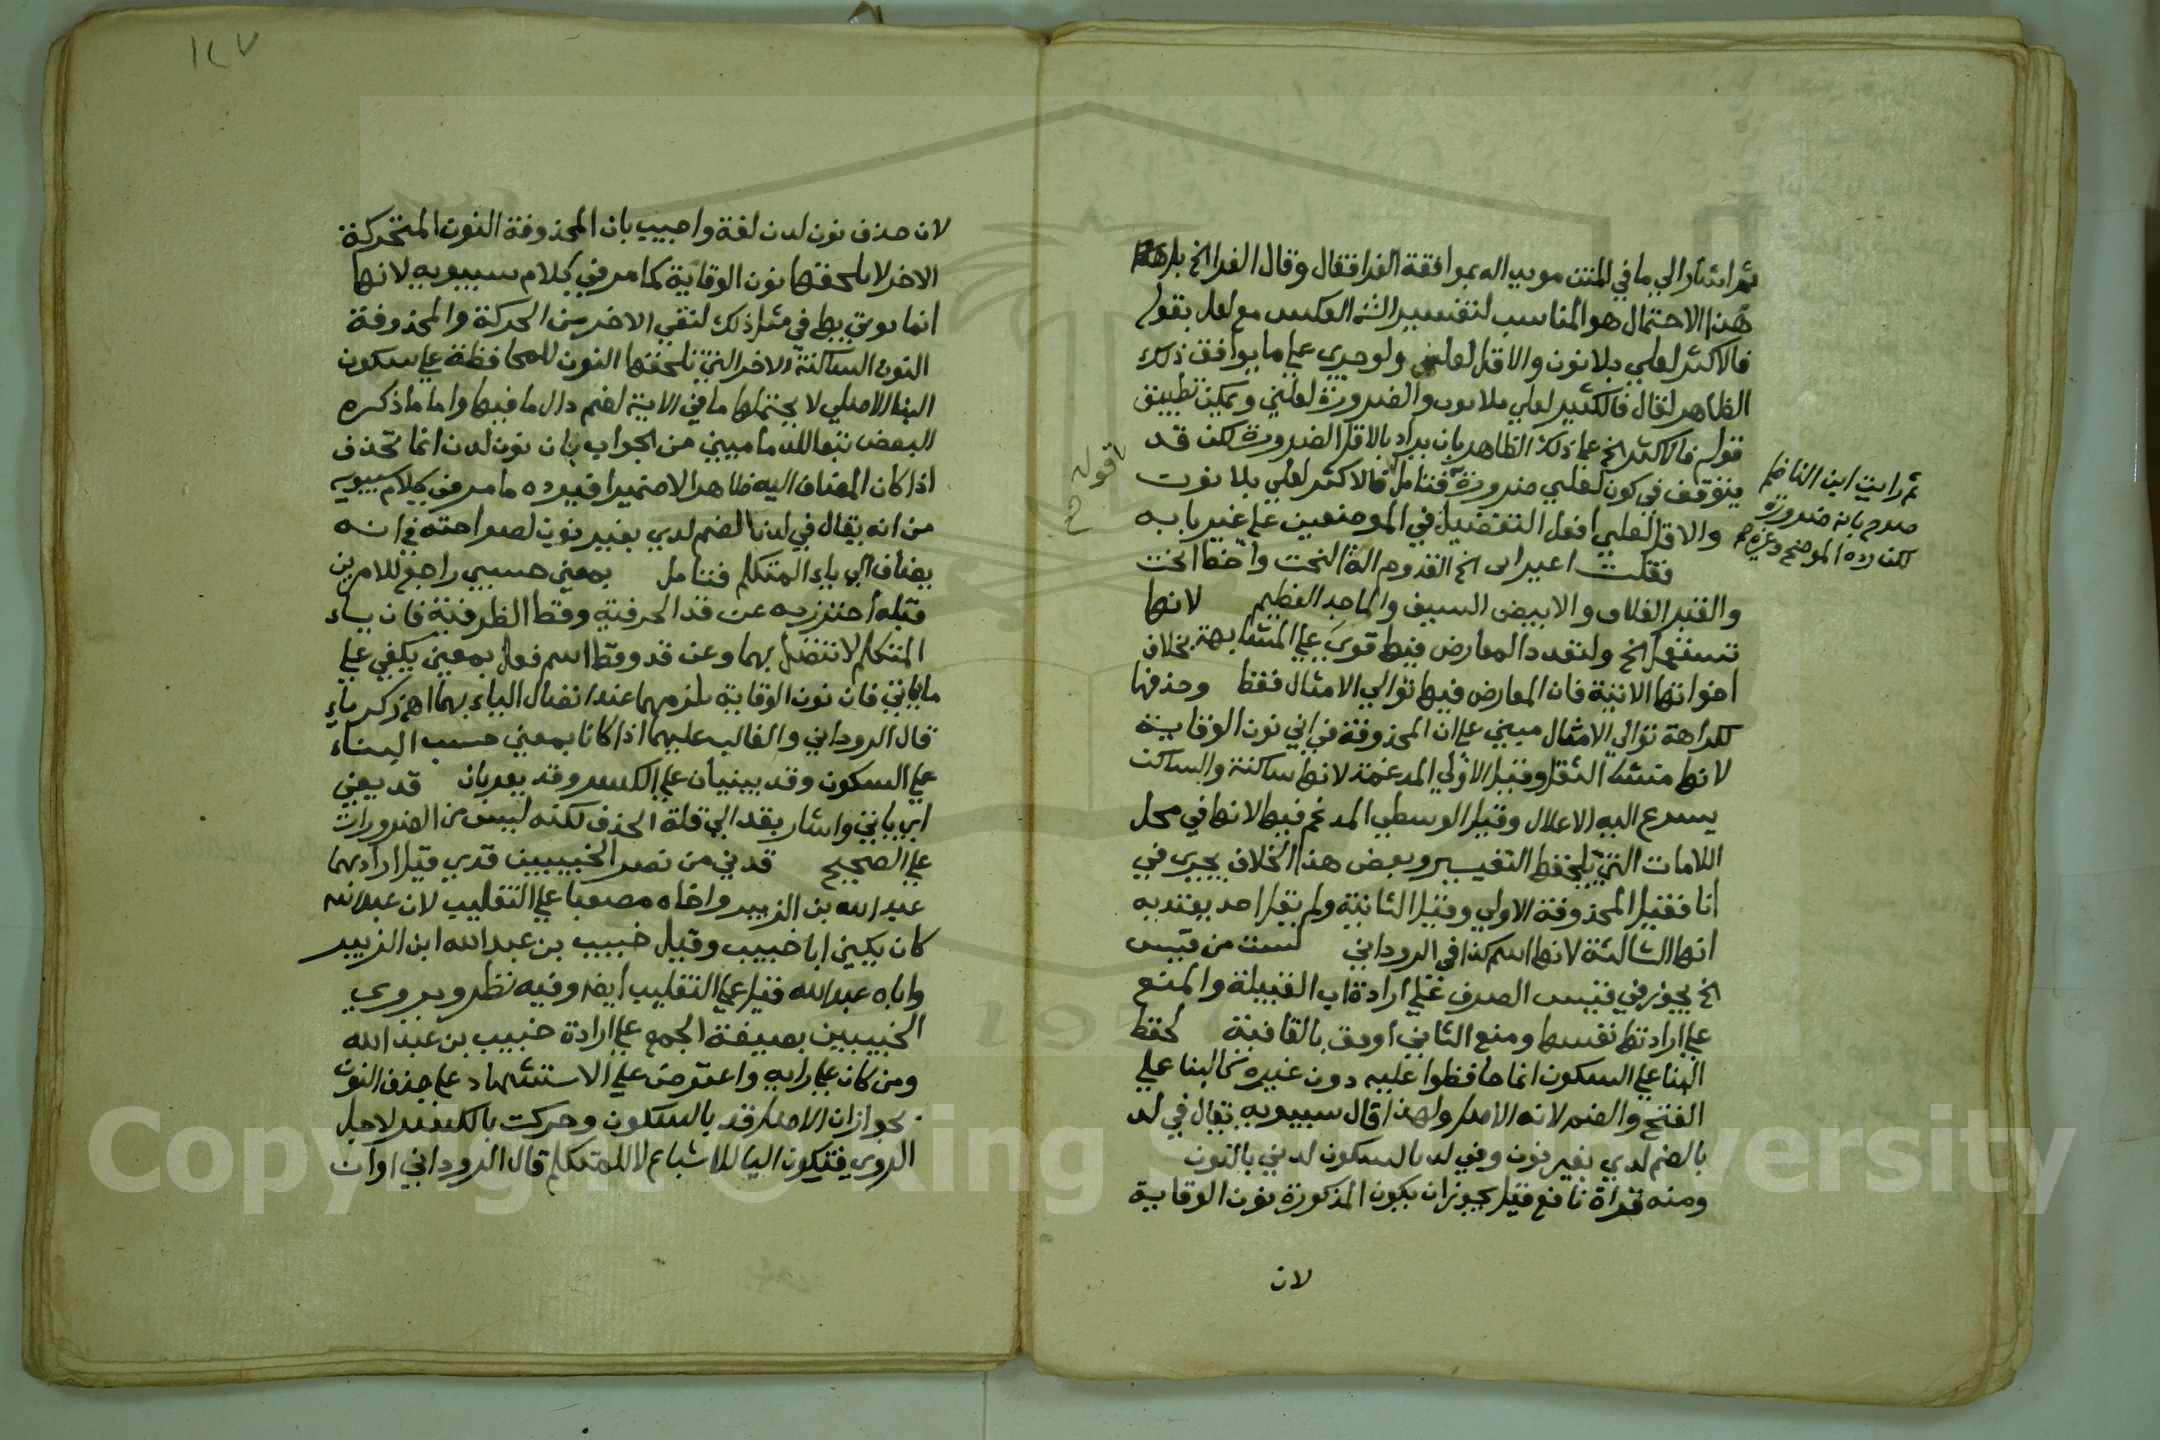 ثم اشار الي ما في المتن مويدا له بموافقة الفرا فقال وقال الفرا الخ بل هذا
هذا الاحتمال هو المناسب لتفسير الش العكس مع لعل بقوله
فالاكثر لعلي بلا نون والاقل لعلني ولو جري علي ما يوافق ذلك
الظاهر لقال فالكثير لعلي بلا نون والضرورة لعلني ويمكن تطبيق
قوله فالاكثر الخ علي ذلك الظاهر بان يراد بالاقل الضرورة لكن قد
يتوقف في كون لعلني ضرورة فتامل فالاكثر لعلي بلا نون
والاقل لعلني افعل التفضيل في الموضعين علي غير بابه
فقلت اعيراني الخ القدوم الة النحت واخط انحت
والقبر الغلاف والابيض السيف والماجد العظيم لانها
تستعمل الخ ولتعدد المعارض فيها قوي علي المشابهة بخلاف
اخواتها الاتية فان المعارض فيها توالي الامثال فقط وحذفها
لكراهة توالي الامثال مبني علي ان المحذوفة في اني نون الوقاية
لانها منشا الثقل وقيل الاولي المدغمة لانها ساكنة والساكن
يسرع اليه الاعلال وقيل الوسطي المدغم فيها لانها في محل
اللامات التي يلحقها التغيير وبعض هذا الخلاف يجري في
انا فقيل المحذوفة الاولي وقيل الثانية ولم يقل احد يعتد به
انها الثالثة لانها اسم كذا في الروداني لست من قيس
الخ يجوز في قيس الصرف علي ارادة اب القبيلة والمنع
علي ارادتها نفسها ومنع الثاني اوفق بالقافية لحفظ
البنا علي السكون انما حافظوا عليه دون غيره كالبنا علي
الفتح والضم لانه الاصل ولهذا قال سيبويه يقال في لد
بالضم لدي بغير نون وفي لد بالسكون لدني بالنون
ومنه قراة نافع قيل يجوز ان يكون المذكورة نون الوقاية
لان
ثم رايت ابن الناظم
صرح بانه ضرورة
لكن رده الموضح وغيره
اقول
١٤٧
لان حذف نون لدن لغة واجيب بان المحذوفة النون المتحركة
الاخر لا يلحقها نون الوقاية كما مر في كلام سيبويه لانها
انما يوتي بها في مثل ذلك لتقي الاخر من الحركة والمحذوفة
النون الساكنة الاخر التي تلحقها النون للمحافظة علي سكون
البنا الاصلي لا يحتملها ما في الاية لضم دال ما فيها واما ما ذكره
البعض تبعا للدماميني من الجواب بان نون لدن انما تحذف
اذا كان المضاف اليه ظاهرا لا ضميرا فيرده ما مر في كلام سيبويه
من انه يقال في لد بالضم لدي بغير نون لصراحته في انه
يضاف الي ياء المتكلم فتامل بمعني حسبي راجع للامرين
قبله احترز به عن قد الحرفية وقط الظرفية فان ياء
المتكلم لا تتصل بهما وعن قد وقط اسم فعل بمعني يكفي علي
ما ياتي فان نون الوقاية تلزمهما عند اتصال الياء بهما اهـ زكرياء
قال الروداني والغالب عليهما اذا كانا بمعني حسب البناء
علي السكون وقد يبنيان علي الكسر وقد يعربان قد يفي
اي ياتي واشار بقد الي قلة الحذف لكنه ليس من الضرورات
علي الصحيح قدني من نصر الخبيبين قدي قيل اراد بهما
عبد الله بن الزبير واخاه مصعبا علي التغليب لان عبد الله
كان يكني ابا خبيب وقيل خبيب بن عبد الله ابن الزبير
واباه عبد الله فقيل علي التغليب ايضا وفيه نظر ويروي
الخبيبين بصيغة الجمع علي ارادة خبيب بن عبد الله
ومن كان علي رايه واعترض علي الاستشهاد علي حذف النون
بجواز ان الاصل قد بالسكون وحركت بالكسر لاجل
الروي فتكون اليا للاشباع لا للمتكلم قال الروداني او ان
Copyright © King Saud University